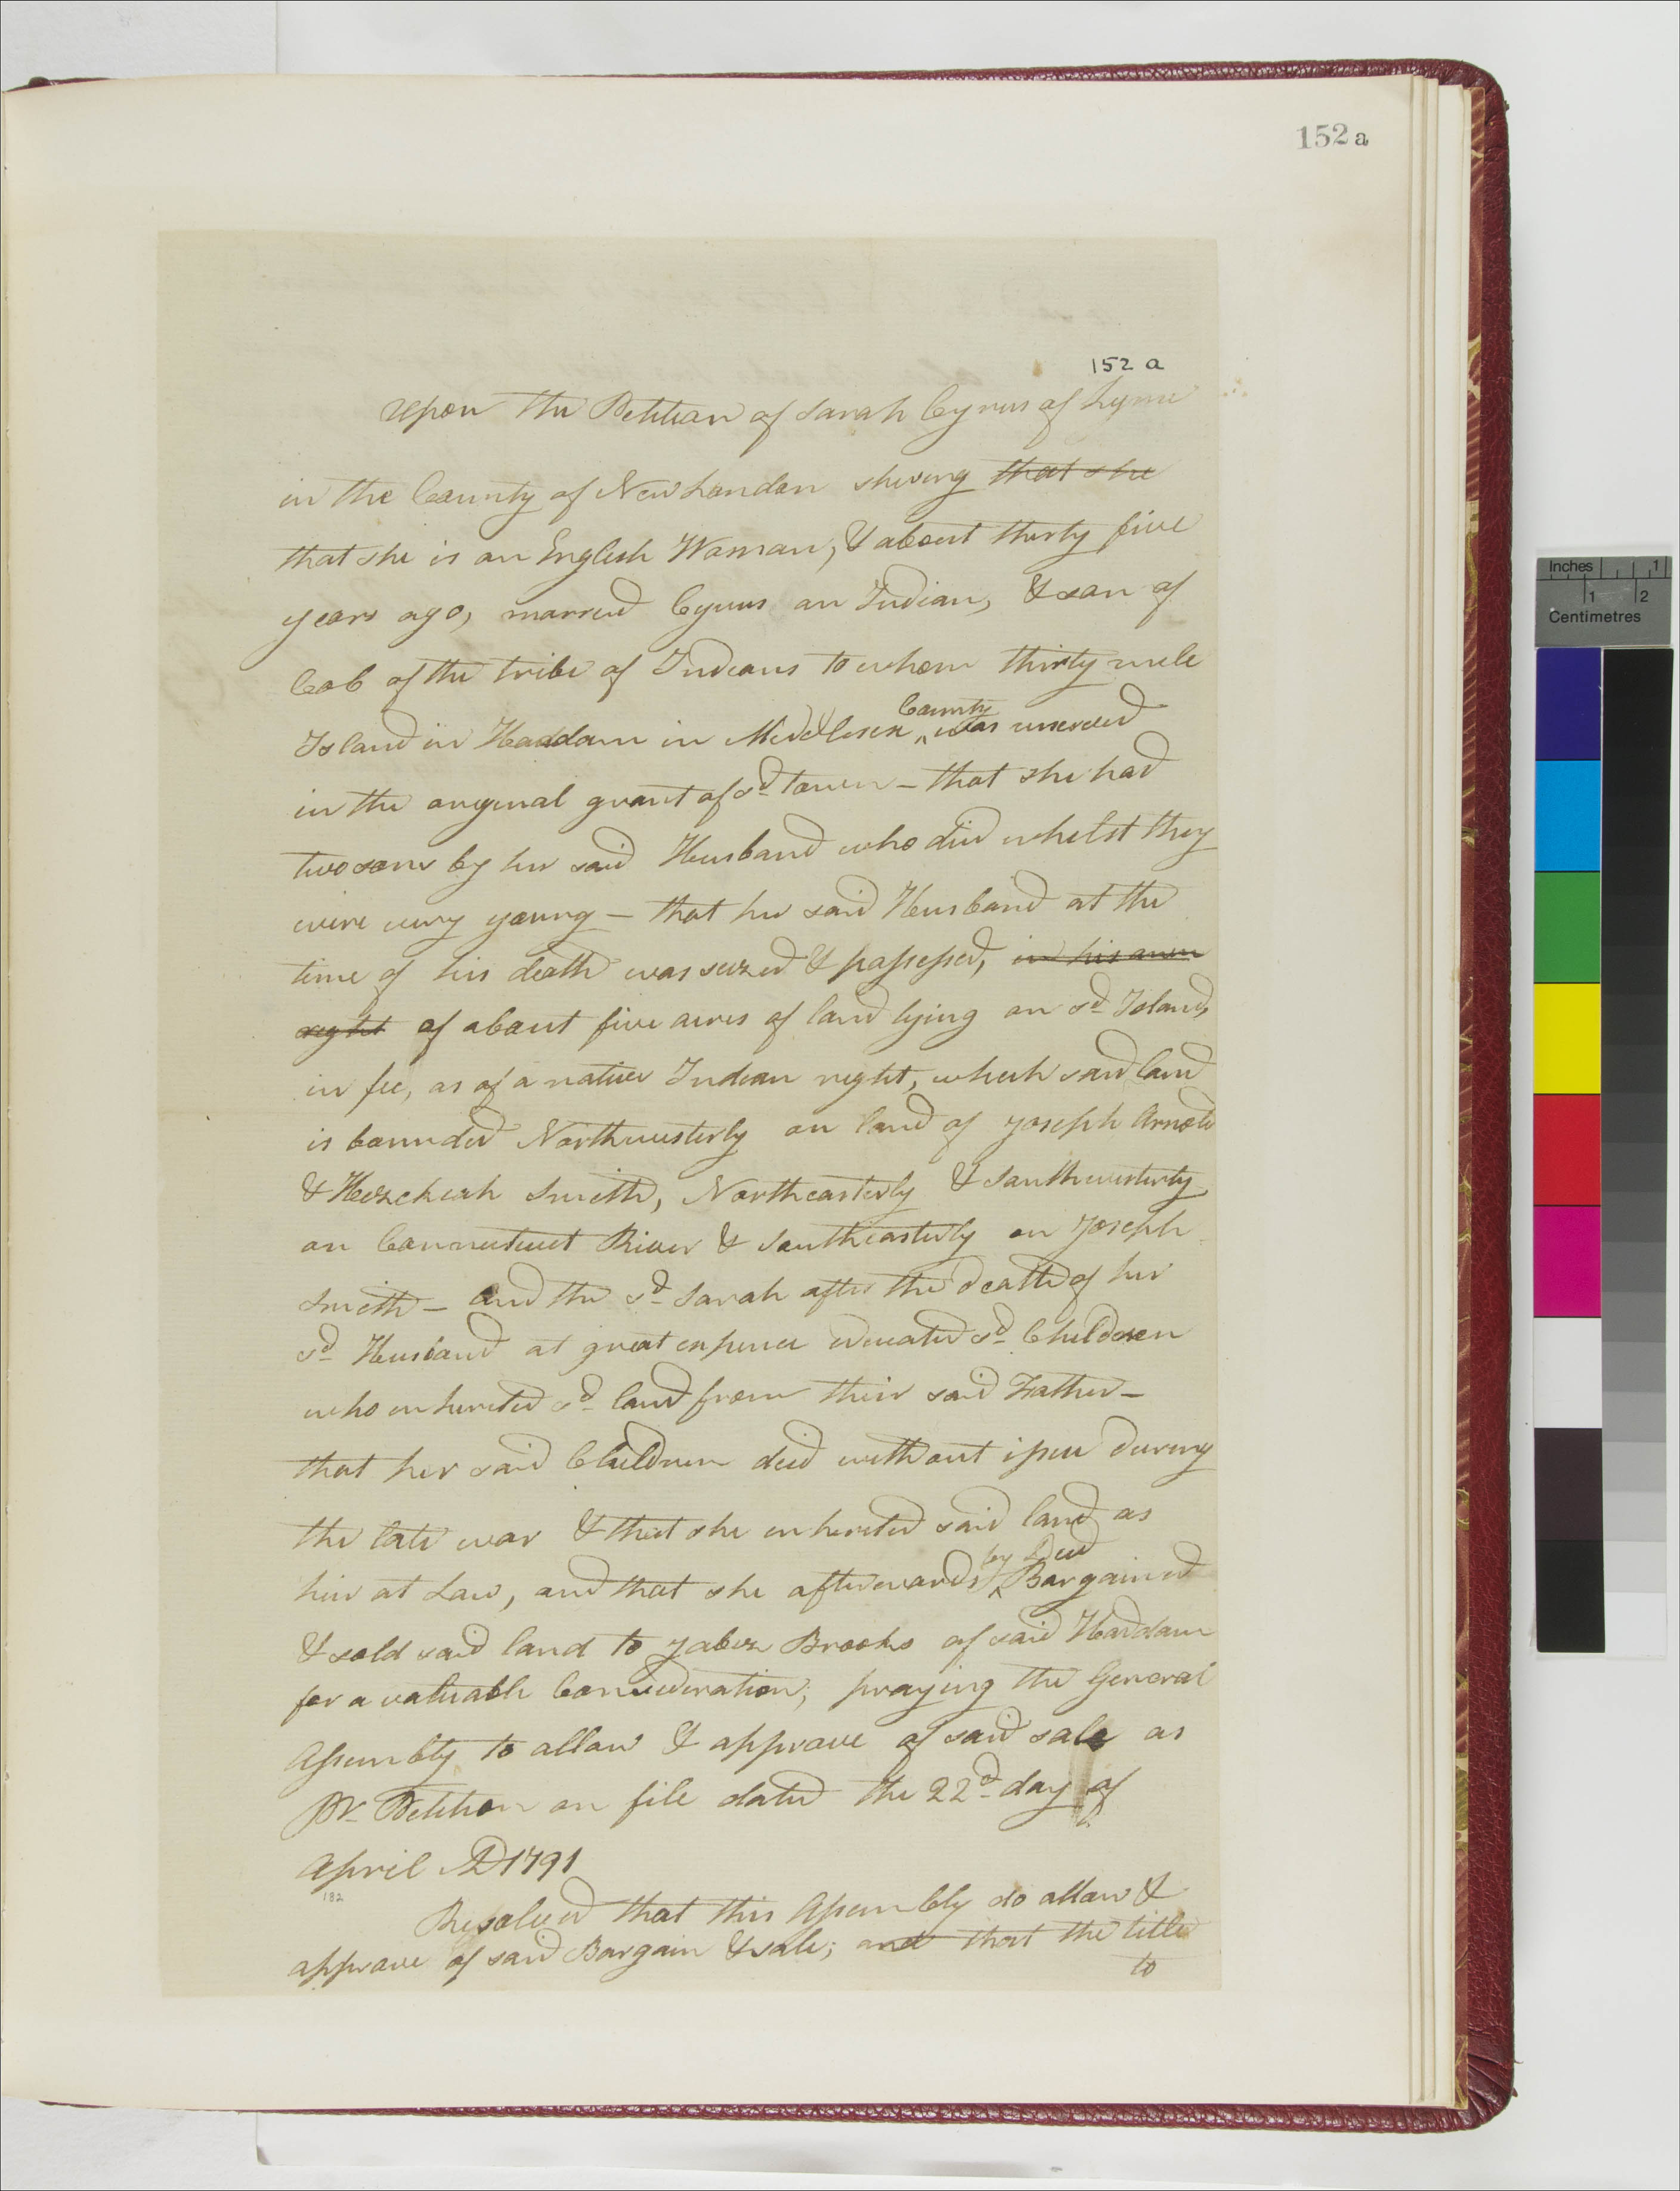 152 a
152 a
Upon the Petition of Sarah Cyrus of Lyme
in the County of New London shewing that she
that she is an English Woman, & about thirty five
years ago, married Cyrus an Indian, & son of
Cob of the tribe of Indians to whom thirty mile
Island in Haddam in Middlesex County was reserved
in the original grant of sd town – that she had
two sons by her said Husband who died whilst they
were very young – that her said Husband at the
time of his death was seized & possessed, in his own
right of about five acres of land lying on sd Island,
in fee, as of a native Indian right, which said land
is bounded Northwesterly on land of Joseph Arnold
& Hezekiah Smith, Northeasterly & Southwesterly
on Connecticut River & Southeasterly on Joseph
Smith – and the sd Sarah after the death of her
sd Husband at great expence educated sd Children
who inherited sd land from their said Father –
that her said Children died without issue during
the late war & that she inherited said land as
heir at Law, and that she afterwards by Deed Bargained
& sold said land to Jabez Brooks of said Haddam
for a valuable Consideration; praying the General
Assembly to allow & approve of said sale as
Pr Petition on file dated the 22d day of
April AD 1791
182
Resolved that this Assembly do allow &
approve of said Bargain & sale; and that the title
to
Inches 1
1 2
Centimetres